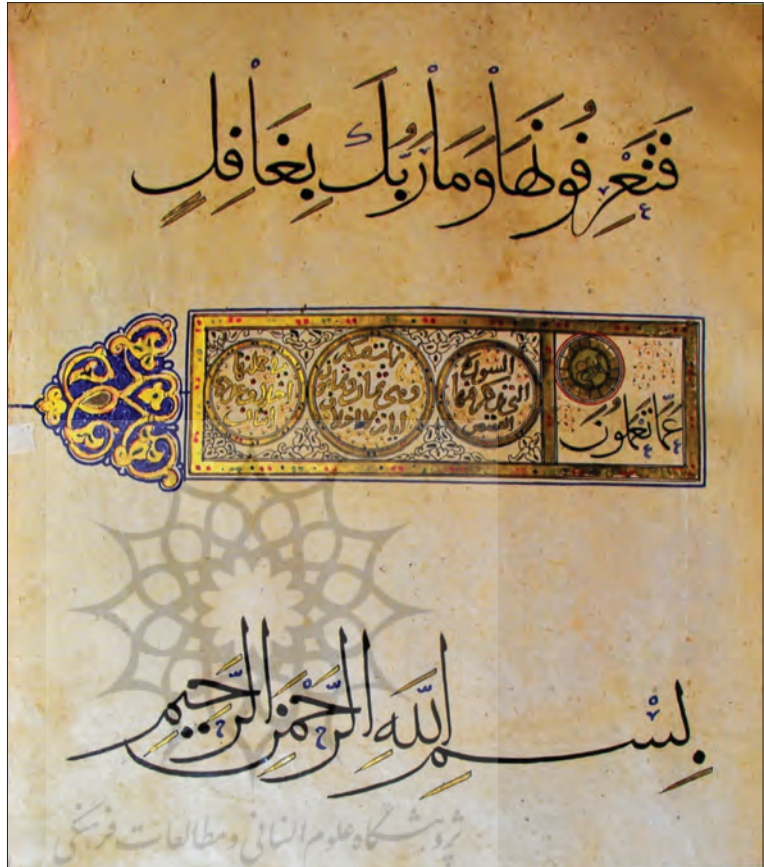 فَتَعْرِفُونَهَا وَمَا رَبُّكَ بِغَافِلٍ
عَمَّا تَعْمَلُونَ
السورة
التي يذكر فيها
القصص
وهي ثمان وثمانون
بِسْمِ اللَّهِ الرَّحْمَنِ الرَّحِيمِ
پژوهشگاه علوم انسانی و مطالعات فرهنگی